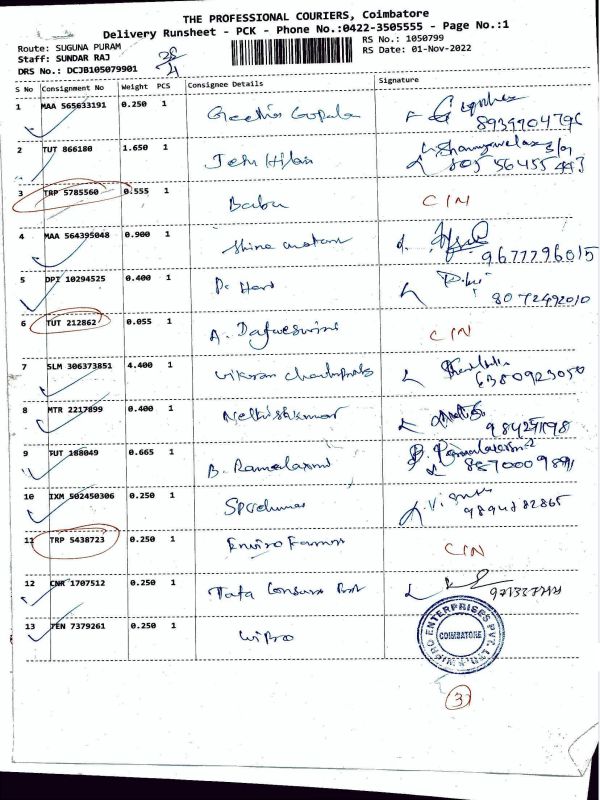 THE PROFESSIONAL COURIERS, Coimbatore
Delivery Runsheet - PCK - Phone No.:0422-3505555 - Page No.:1
Route: SUGUNA PURAM
RS No.: 1050799
Staff: SUNDAR RAJ
RS Date: 01-Nov-2022
DRS No.: DCJB105079901
S No Consignment No Weight PCS Consignee Details Signature
1 MAA 565633191 0.250 1 Geetha Gopala
8939904796
2 TUT 866180 1.650 1
3 TRP 5785560 0.555 1 Babu CIN
4 MAA 564395048 0.900 1
9677796015
5 DPI 10294525 0.400 1
8072492010
6 TUT 212862 0.055 1 A. CIN
7 SLM 306373851 4.400 1 Vikram
8 MTR 2217899 0.400 1 Nethishkumar
9 TUT 188049 0.665 1 B. Ramalaxmi
10 IXM 502450306 0.250 1
9894782865
11 TRP 5438723 0.250 1 Enviro Farmers CIN
12 CNR 1707512 0.250 1 Tata Consum
13 TEN 7379261 0.250 1 Wipro
WIPRO ENTERPRISES PVT. LTD.
COIMBATORE
3